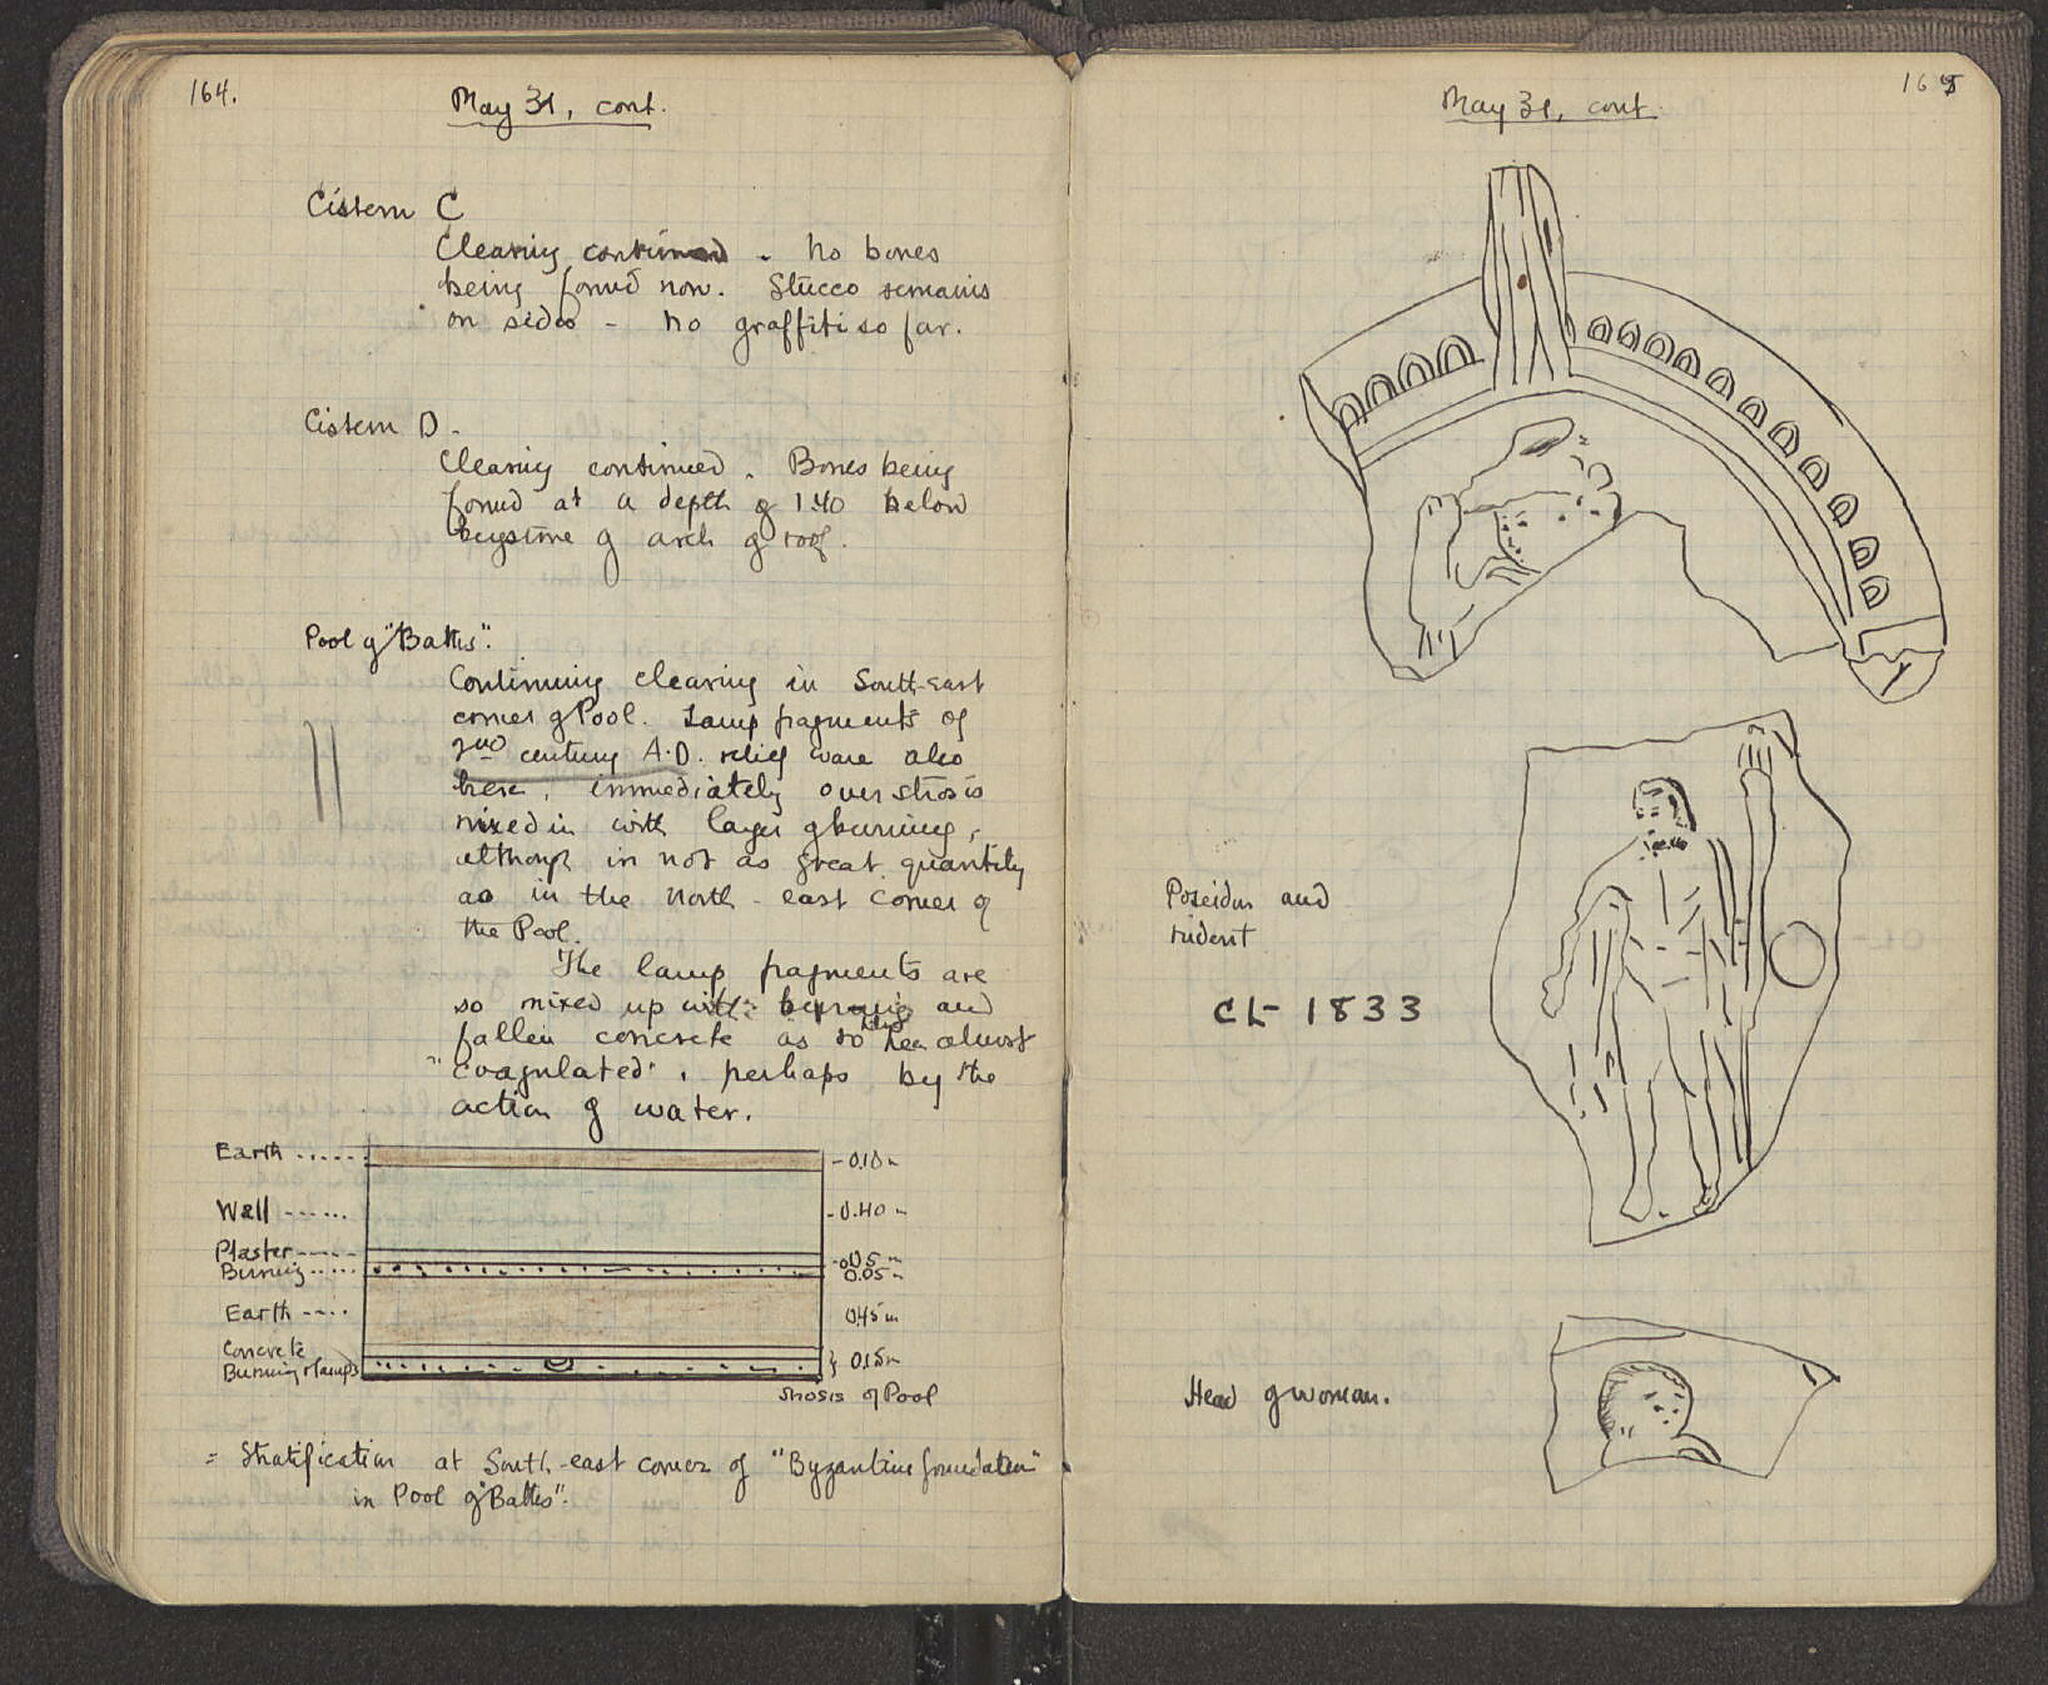 164.
May 31, cont.
Cistern C
Clearing continued. No bones
being found now. Stucco remains
on sides - no graffiti so far.
Cistern D -
Clearing continued. Bones being
found at a depth of 1.40 below
keystone of arch of roof.
Pool of "Baths".
Continuing clearing in South-east
corner of Pool. Lamp fragments of
2nd century A.D. relief ware also
here, immediately over strosis
mixed in with layer of burning,
although in not as great quantity
as in the north-east corner of
the Pool.
The lamp fragments are
so mixed up with burning and
fallen concrete as to be almost
"coagulated", perhaps by the
action of water.
Earth ...... - 0.10 m
Wall ------ - 0.40 m
Plaster ----- - 0.05 m
Burning ...... 0.05 m
Earth ---- 0.45 m
Concrete
Burning & lamps } 0.15 m
Strosis of Pool
= Stratification at South-east corner of "Byzantine foundation"
in Pool of "Baths".
165
May 31, cont.
Poseidon and
trident
CL- 1833
Head of woman.